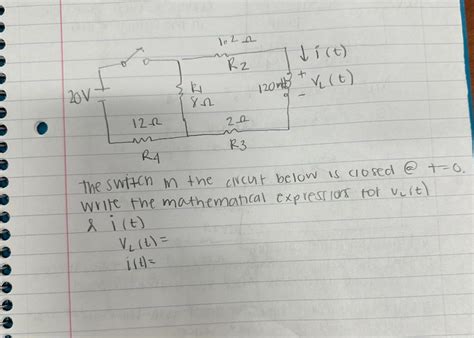 1.2 Ω
↓ i(t)
R2
+
20V
R1
8Ω
120mH
VL(t)
-
12Ω
2Ω
R4
R3
The switch in the circuit below is closed @ t=0.
Write the mathematical expressions for VL(t)
& i(t)
VL(t)=
i(t)=